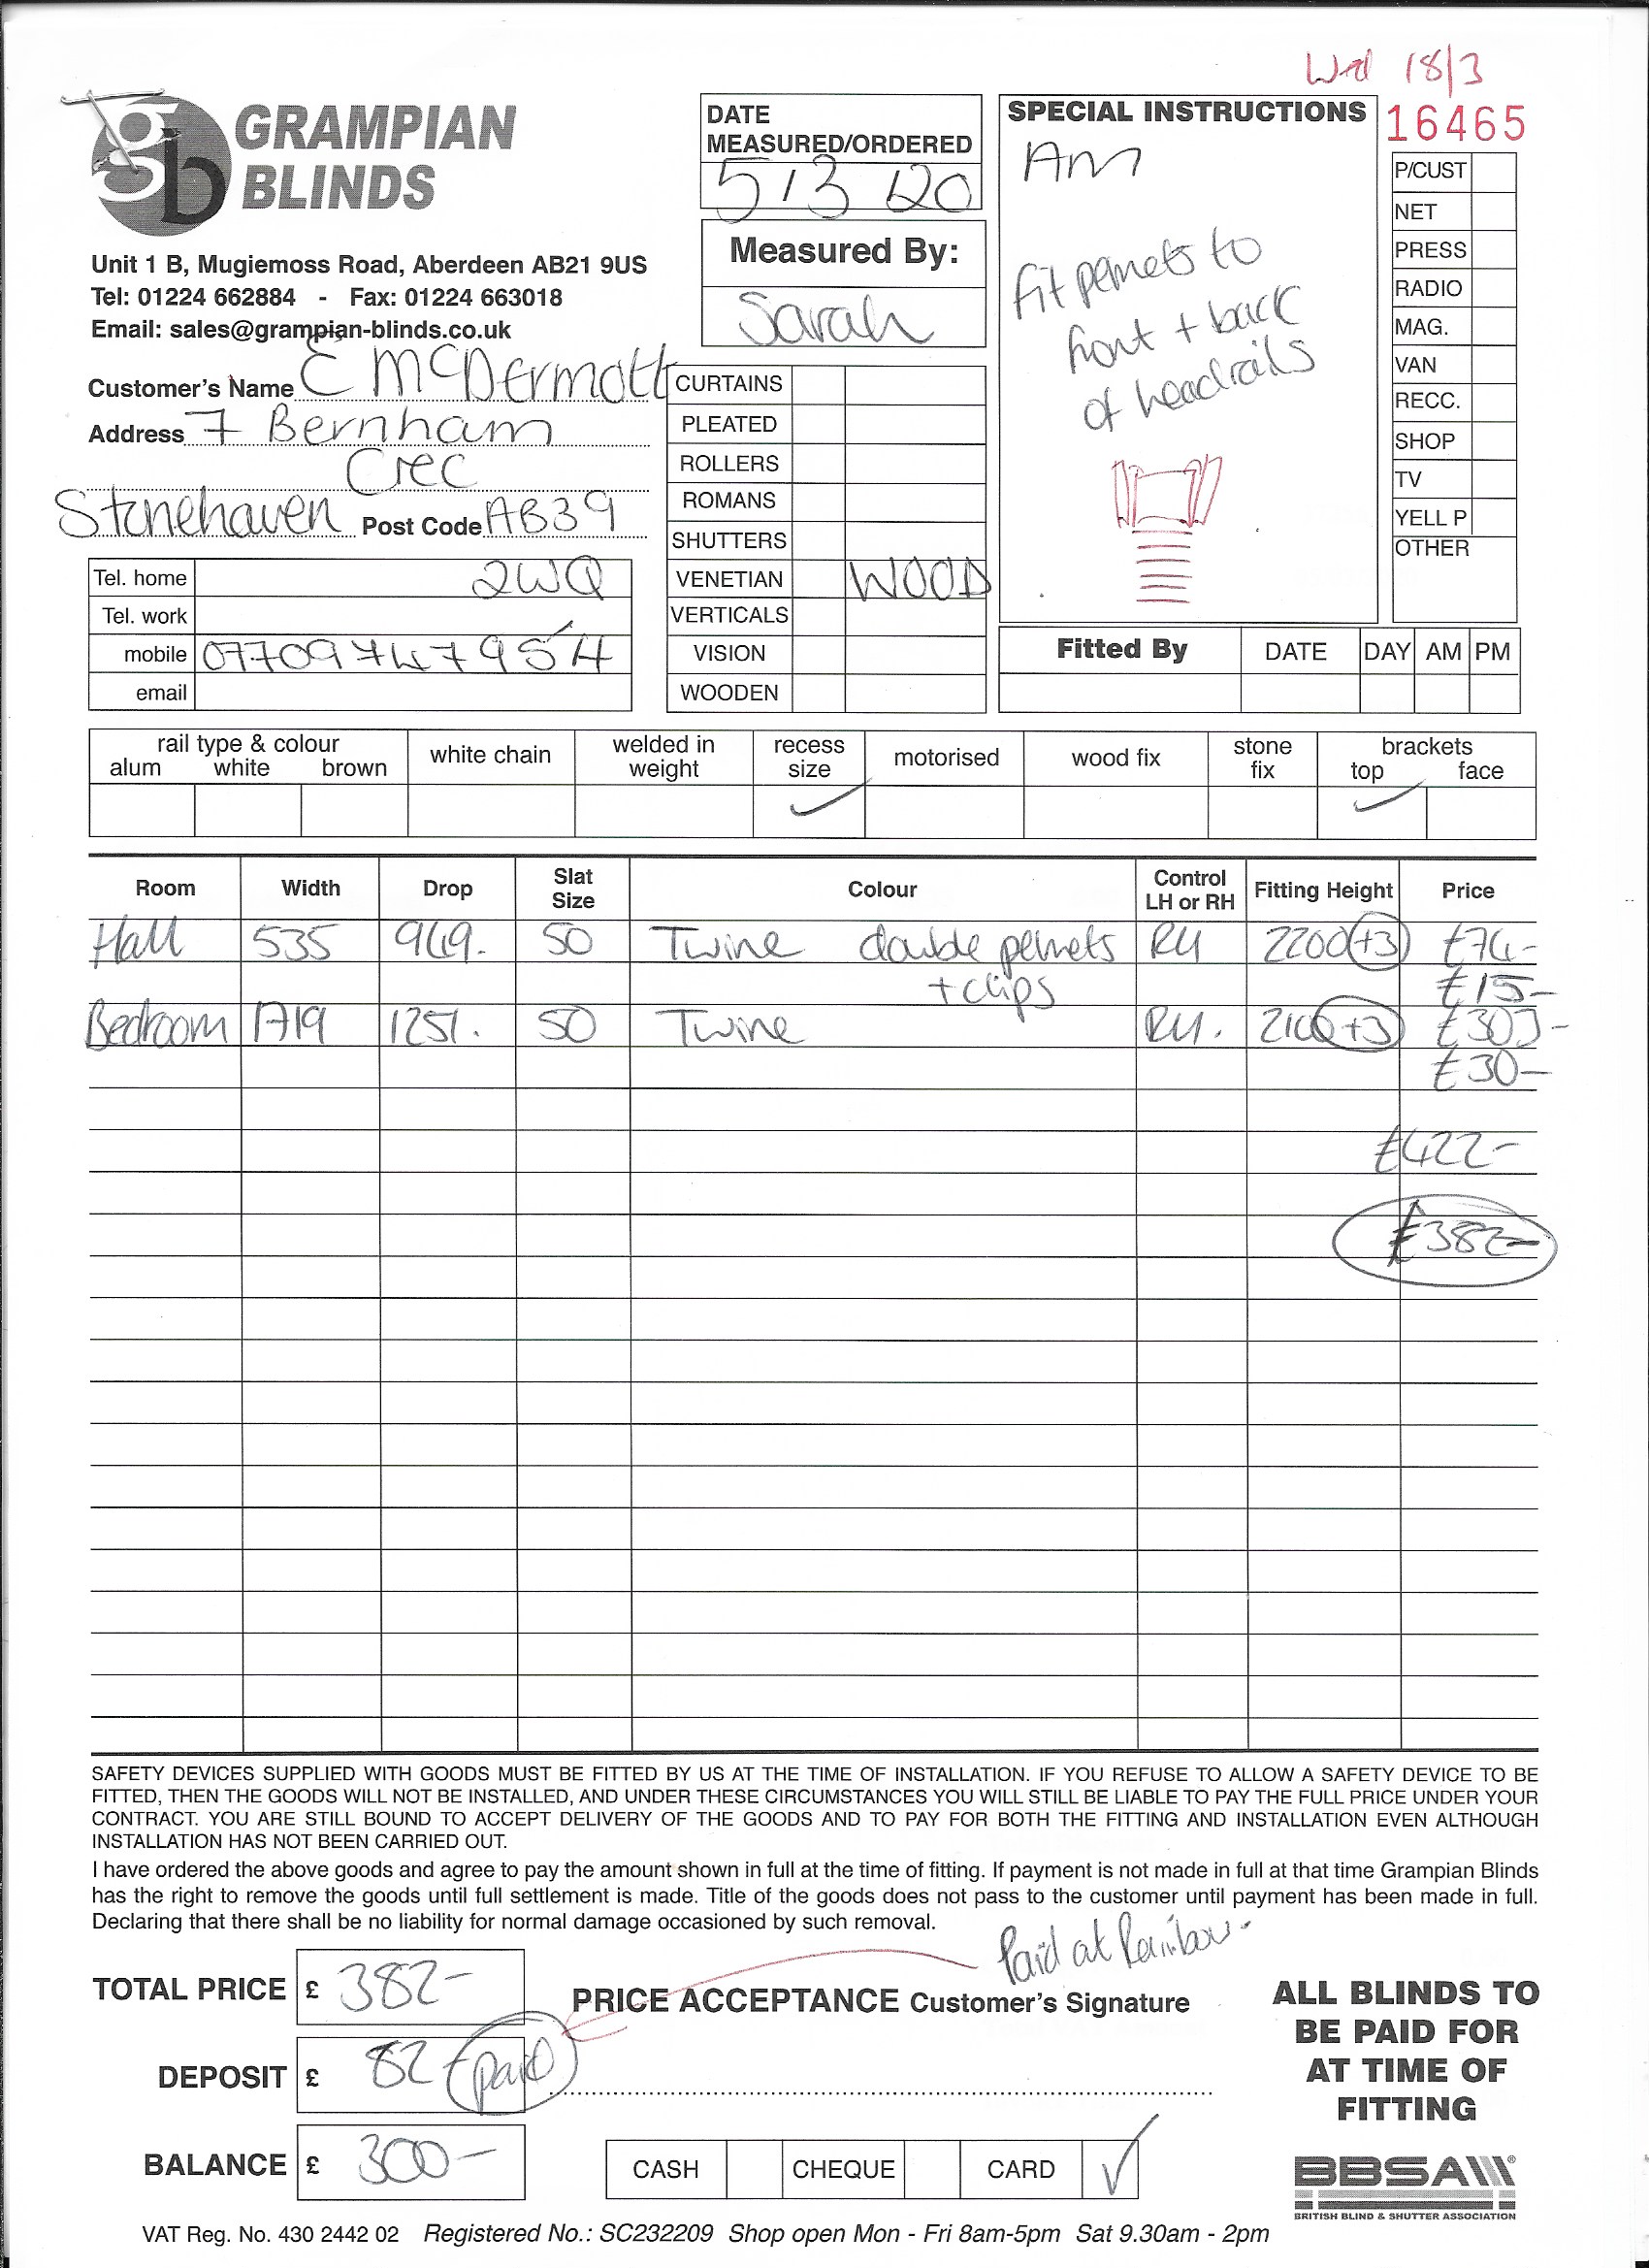 Wed 18/3
GRAMPIAN
BLINDS
Unit 1 B, Mugiemoss Road, Aberdeen AB21 9US
Tel: 01224 662884 - Fax: 01224 663018
Email: sales@grampian-blinds.co.uk
DATE
MEASURED/ORDERED
5/3/20
Measured By:
Sarah
SPECIAL INSTRUCTIONS
AM
fit pelmets to
front + back
of headrails
16465
P/CUST
NET
PRESS
RADIO
MAG.
VAN
RECC.
SHOP
TV
YELL P
OTHER
Customer's Name E McDermott
Address 7 Bernham
Crec
Stonehaven Post Code AB39
2WQ
Tel. home
Tel. work
mobile
email
CURTAINS
PLEATED
ROLLERS
ROMANS
SHUTTERS
VENETIAN WOOD
VERTICALS
VISION
WOODEN
Fitted By DATE DAY AM PM
rail type & colour
alum white brown
white chain
welded in
weight
recess
size ✓
motorised
wood fix
stone
fix
brackets
top face
✓
Room Width Drop Slat Size Colour Control LH or RH Fitting Height Price
Hall 535 949. 50 Twine double pelmets RH 2200 +3 £74-
+ clips £15-
Bedroom 1719 1251. 50 Twine RH. 2100 +3 £303-
£30-
£422-
£382-
SAFETY DEVICES SUPPLIED WITH GOODS MUST BE FITTED BY US AT THE TIME OF INSTALLATION. IF YOU REFUSE TO ALLOW A SAFETY DEVICE TO BE
FITTED, THEN THE GOODS WILL NOT BE INSTALLED, AND UNDER THESE CIRCUMSTANCES YOU WILL STILL BE LIABLE TO PAY THE FULL PRICE UNDER YOUR
CONTRACT. YOU ARE STILL BOUND TO ACCEPT DELIVERY OF THE GOODS AND TO PAY FOR BOTH THE FITTING AND INSTALLATION EVEN ALTHOUGH
INSTALLATION HAS NOT BEEN CARRIED OUT.
I have ordered the above goods and agree to pay the amount shown in full at the time of fitting. If payment is not made in full at that time Grampian Blinds
has the right to remove the goods until full settlement is made. Title of the goods does not pass to the customer until payment has been made in full.
Declaring that there shall be no liability for normal damage occasioned by such removal.
Paid at Rainbow-
TOTAL PRICE £ 382-
PRICE ACCEPTANCE Customer's Signature
DEPOSIT £ 82 (paid)
BALANCE £ 300-
CASH CHEQUE CARD ✓
ALL BLINDS TO
BE PAID FOR
AT TIME OF
FITTING
BBSA
BRITISH BLIND & SHUTTER ASSOCIATION
VAT Reg. No. 430 2442 02 Registered No.: SC232209 Shop open Mon - Fri 8am-5pm Sat 9.30am - 2pm